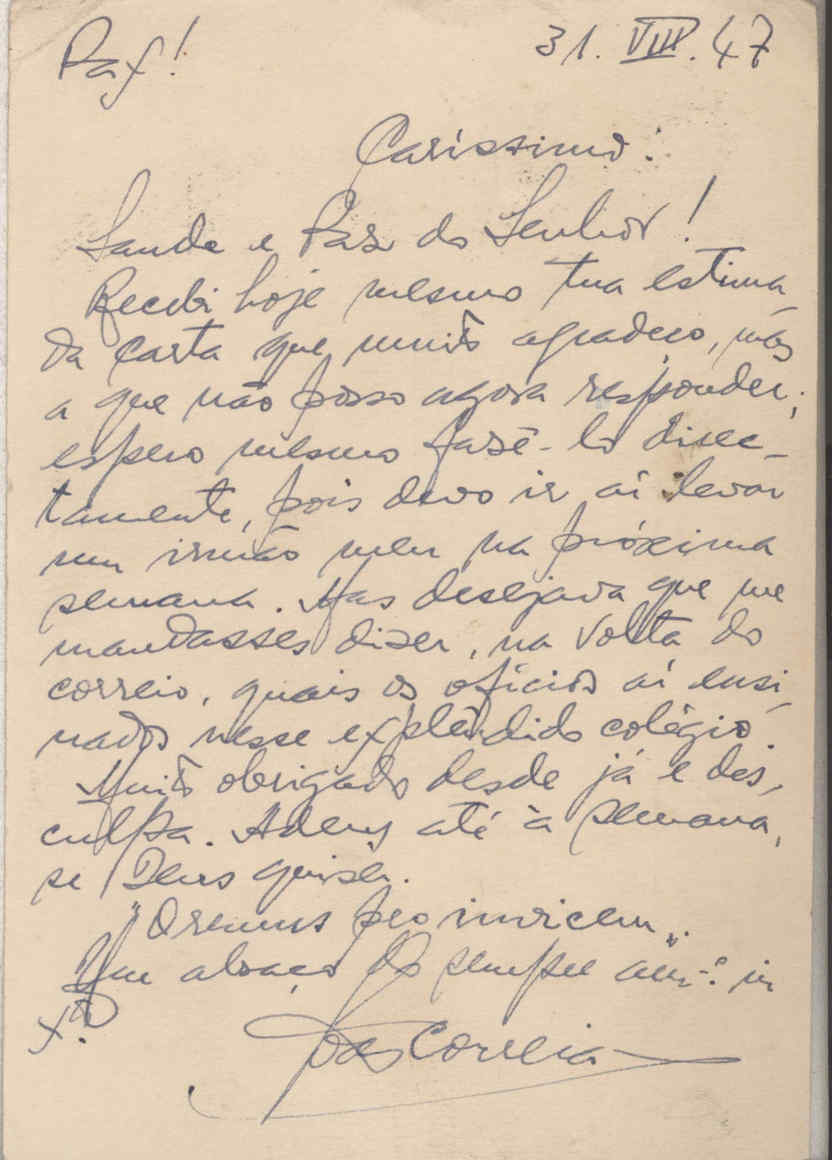 Pax!
31. VIII. 47
Caríssimo:
Saude e Paz do Senhor!
Recebi hoje mesmo tua estima-
da carta que muito agradeço, mas
a que não posso agora responder;
espero mesmo fazê-lo direc-
tamente, pois devo ir aí levar
um irmão meu na próxima
semana. Mas desejava que me
mandasses dizer, na volta do
correio, quais os ofícios aí ensi-
nados nesse explêndido colégio.
Muito obrigado desde já e des-
culpa. Adeus até à semana,
se Deus quiser.
"Oremus pro invicem".
Um abraço do sempre am.º in
X.to
João Correia